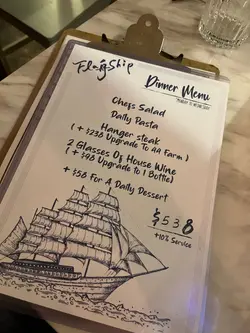 FlagShip
Dinner Menu
Chefs Salad
Daily Pasta
Hanger steak
( + $238 Upgrade To AA Farm )
2 Glasses Of House Wine
( + $98 Upgrade to 1 Bottle)
+ $58 For A Daily Dessert
$538
+10% Service